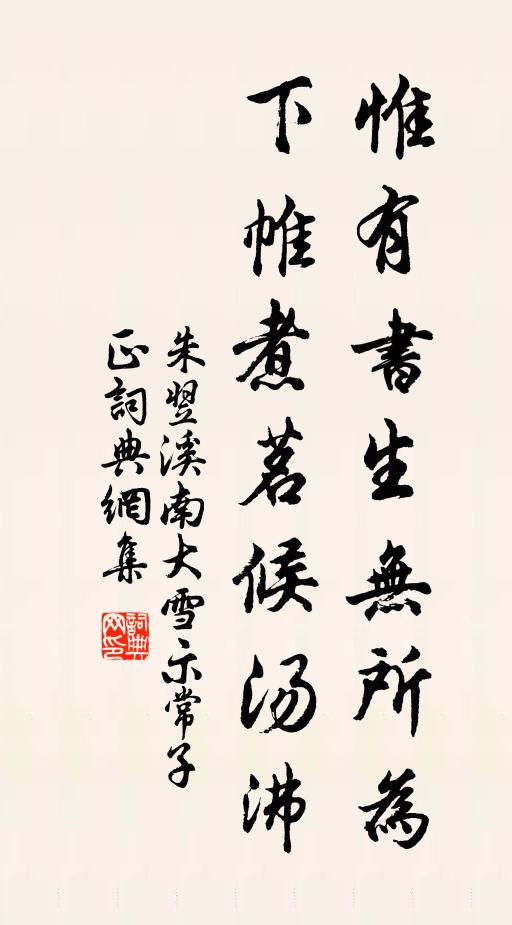 惟有書生無所為
下帷煮茗候汤沸
朱翌溪南大雪示常子
正詞典網集
詞典网印